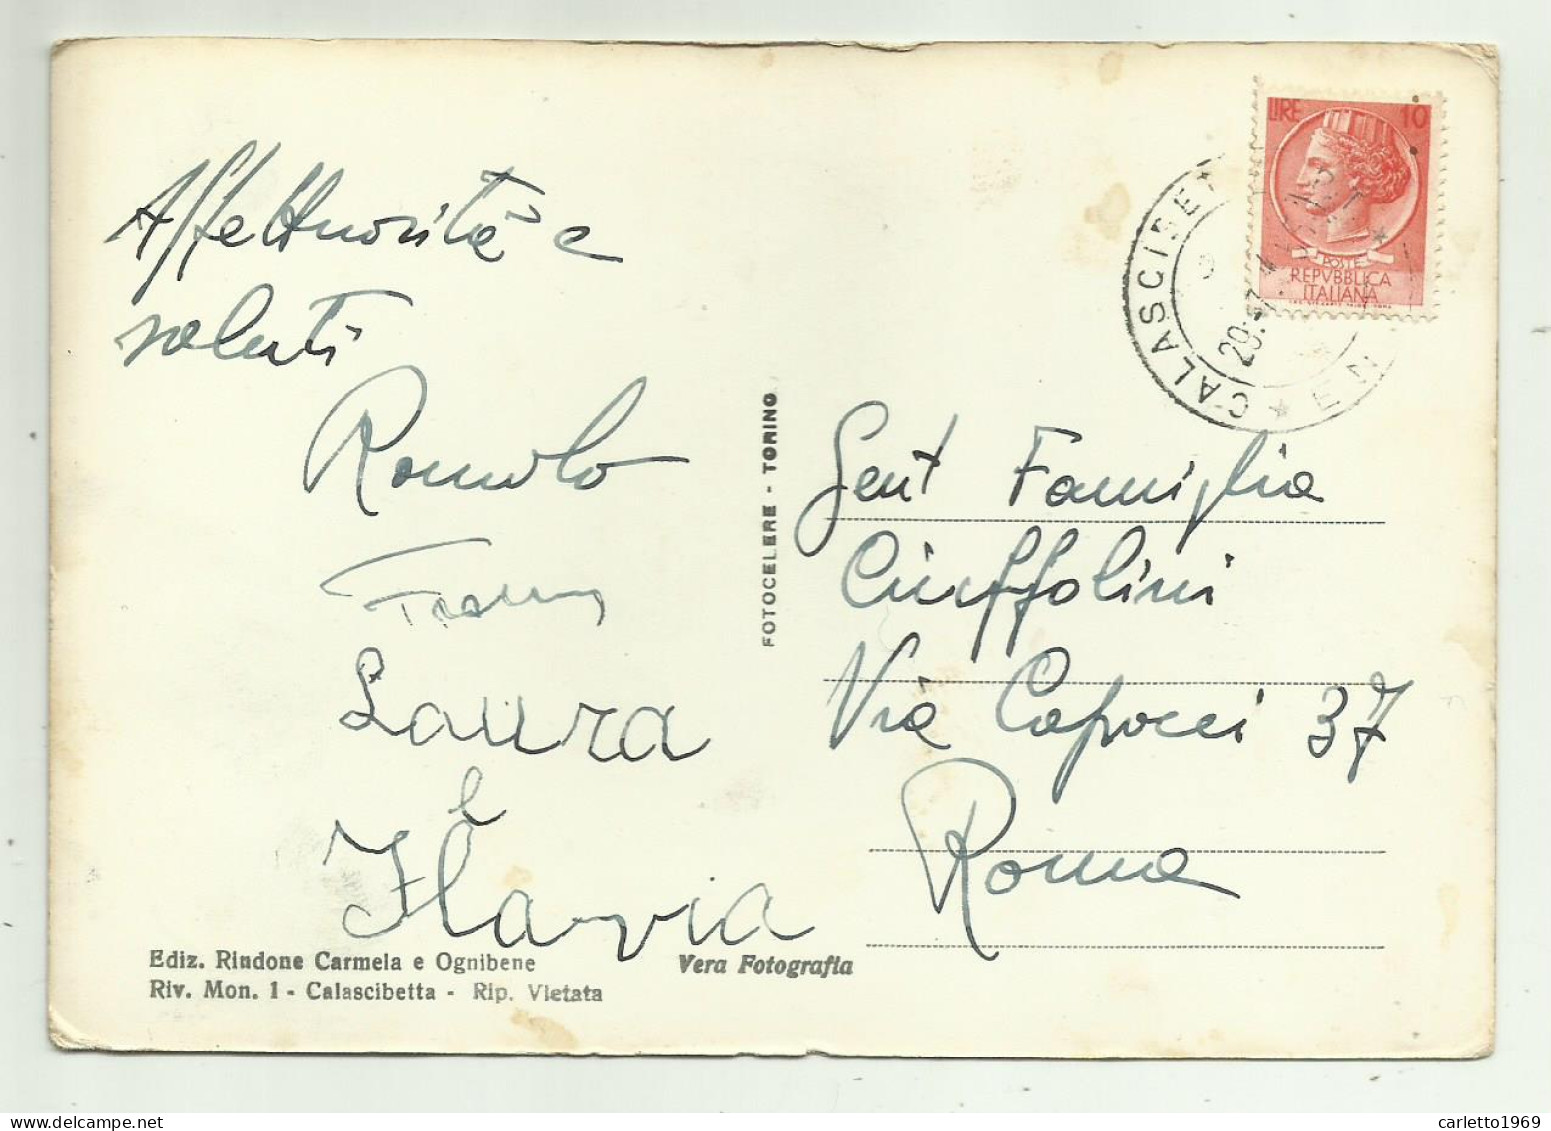 Affettuosità e
saluti
Romolo
Laura
e
Flavia
Ediz. Rindone Carmela e Ognibene
Riv. Mon. 1 - Calascibetta - Rip. Vietata
Vera Fotografia
FOTOCELERE - TORINO
LIRE 10
POSTE
REPVBBLICA
ITALIANA
CALASCIBET
EN
Gent Famiglia
Ciuffolini
Via Capocci 37
Roma
delcampe.net
carletto1969